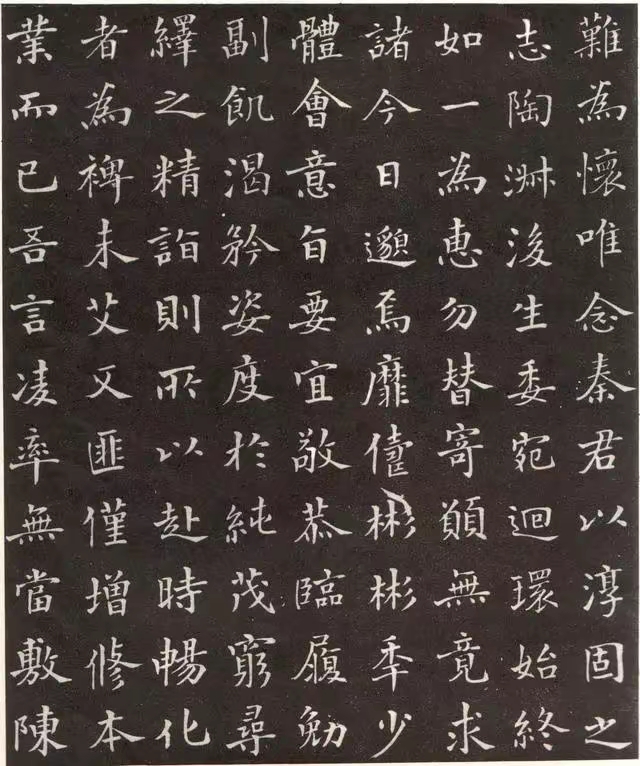 難為懷唯念秦君以淳固之
志陶淋後生委宛迴環始終
如一為惠勿替寄顛無竟求
諸今日邈焉靡儔彬彬季少
體會意旨要宜敬恭臨履勉
副飢渴矜姿度於純茂窮尋
繹之精詣則所以赴時暢化
者為裨未艾又匪僅增修本
業而已吾言淩率無當敷陳